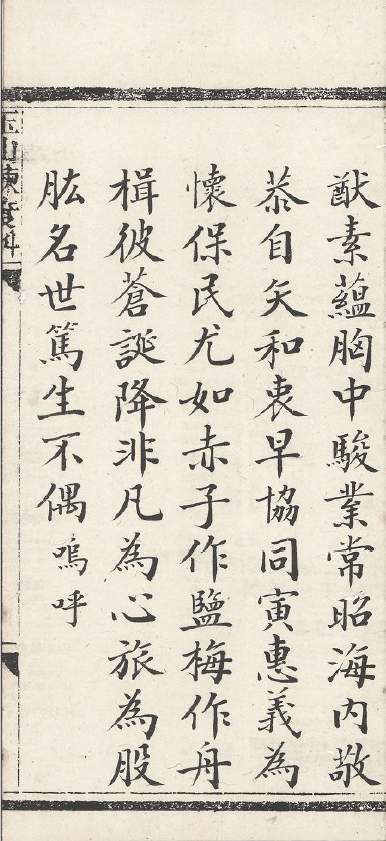 猷素藴胸中駿業常昭海内敬
恭自矢和衷早協同寅惠義為
懷保民尤如赤子作鹽梅作舟
楫彼蒼誕降非凡為心旅為股
肱名世篤生不偶嗚呼
玉山